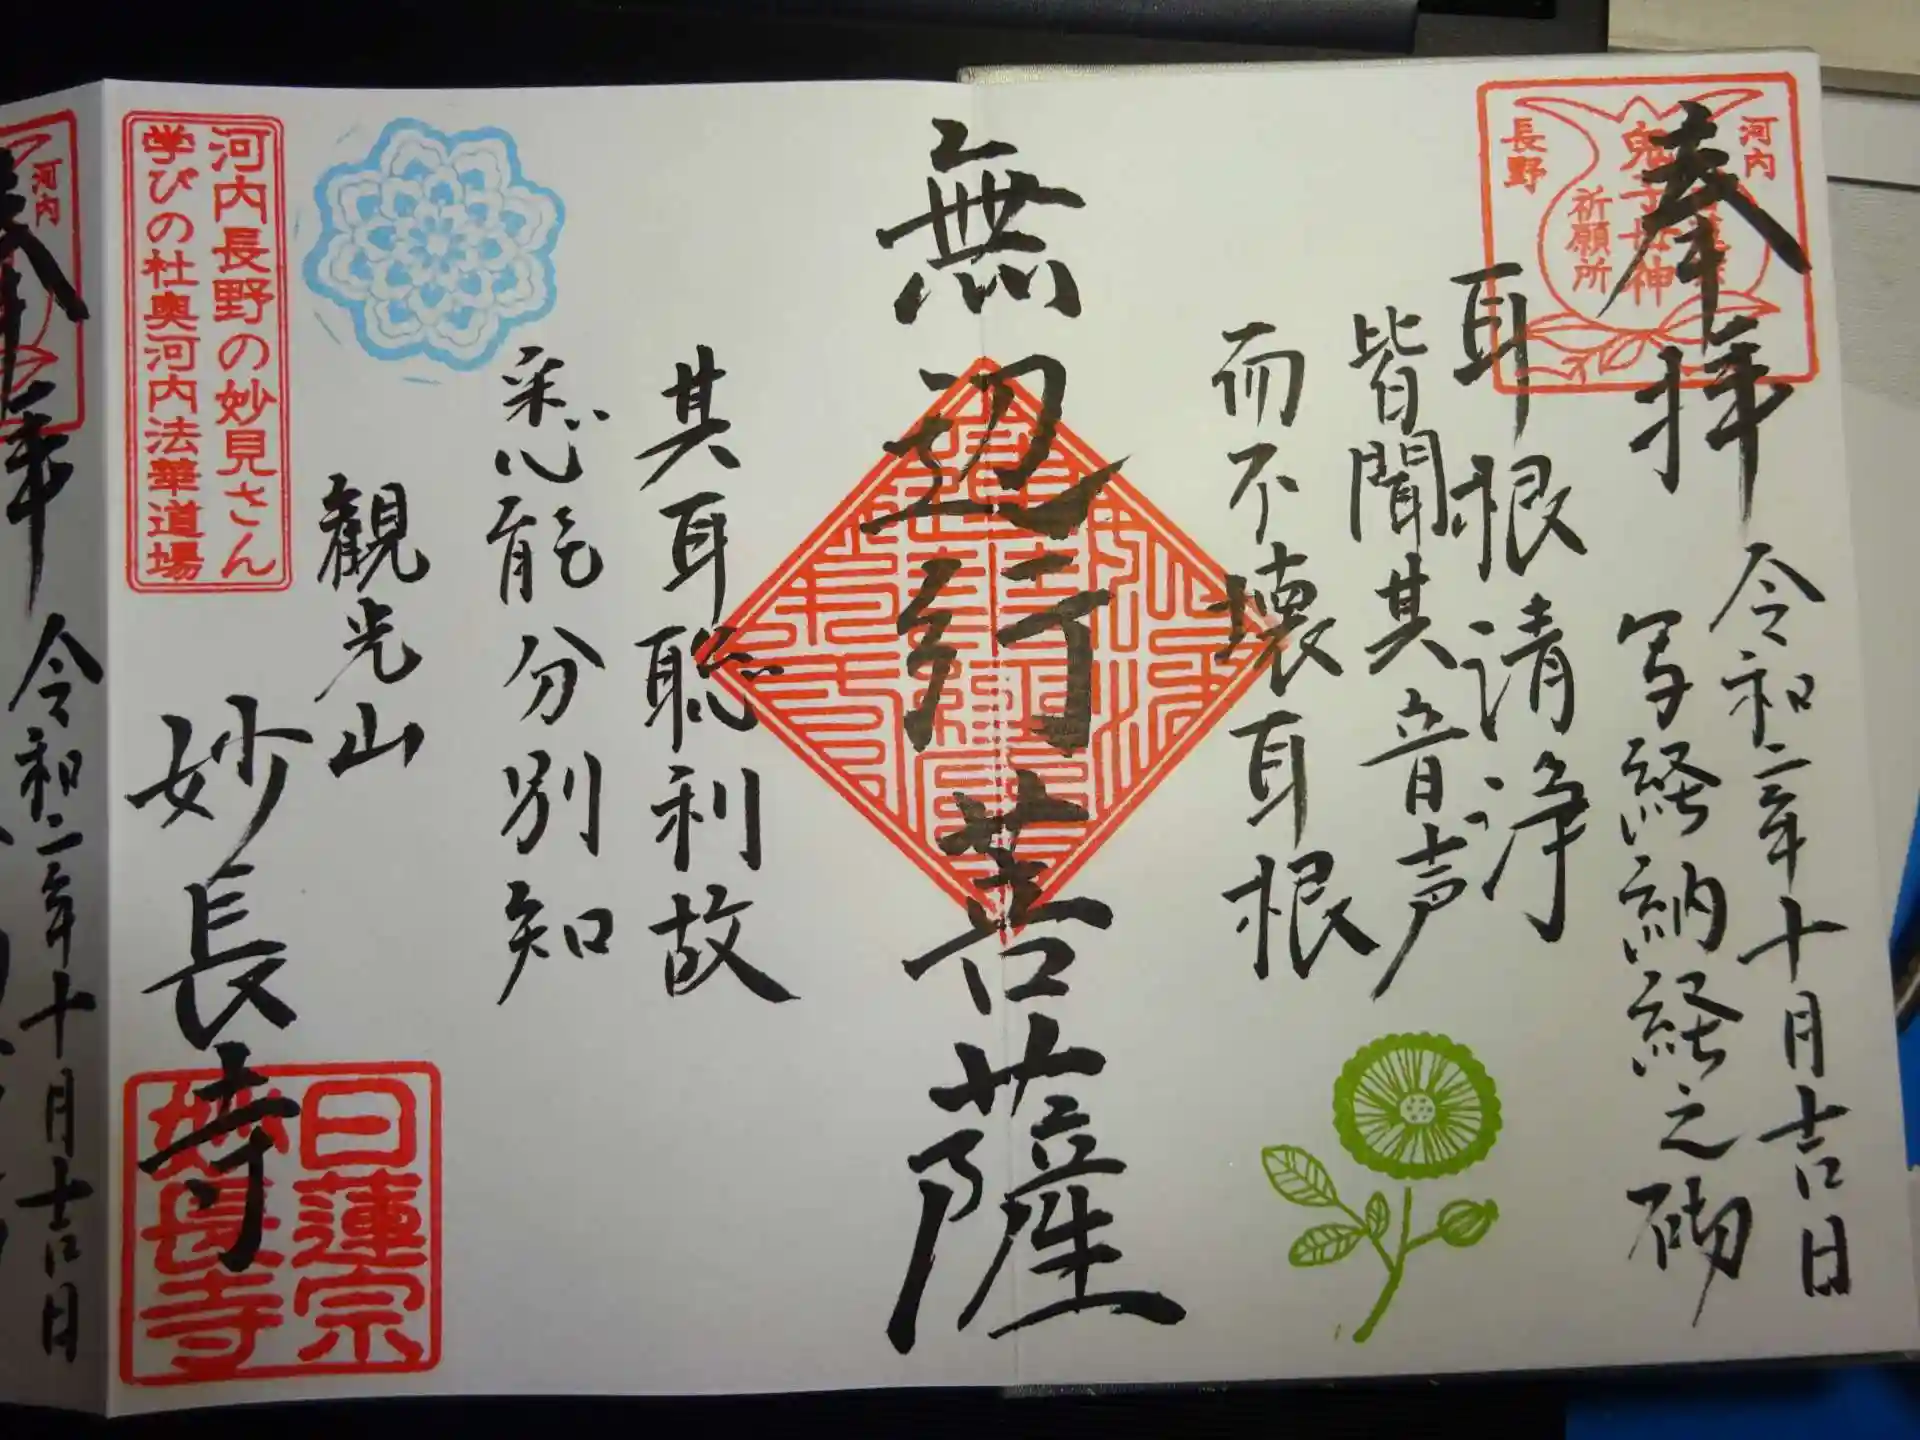 奉拝
令和二年十月吉日
写経納経之砌
河内
長野
鬼子母神
祈願所
耳根清浄
皆聞其音声
而不壊耳根
無辺行菩薩
其耳聡利故
悉能分別知
観光山
妙長寺
河内長野の妙見さん
学びの杜奥河内法華道場
日蓮宗
妙長寺
河内
奉拝
令和二年十月吉日